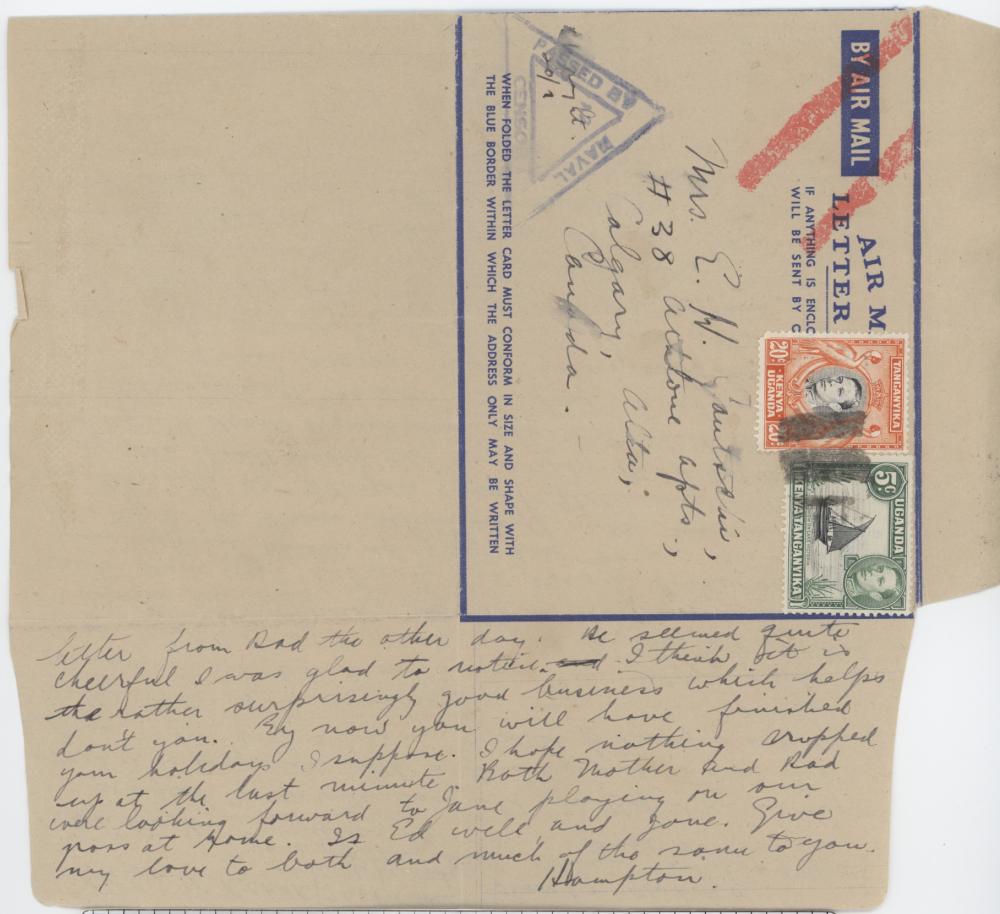 BY AIR MAIL
AIR M
LETTER
IF ANYTHING IS ENCLO
WILL BE SENT BY
TANGANYIKA
20¢ KENYA UGANDA 20¢
5¢ UGANDA
KENYA TANGANYIKA
PASSED BY
NAVAL
CENSO
Mrs. E. W.
# 38 apts.,
Calgary, Alta;
Canada.
WHEN FOLDED THE LETTER CARD MUST CONFORM IN SIZE AND SHAPE WITH
THE BLUE BORDER WITHIN WHICH THE ADDRESS ONLY MAY BE WRITTEN
letter from Dad the other day. He seemed quite
cheerful I was glad to notice. and I think it is
the rather surprisingly good business which helps
don't you. By now you will have finished
your holidays I suppose. I hope nothing cropped
up at the last minute. Both Mother and Dad
were looking forward to Jane playing on our
grass at home. Is Ed well and Jane. Give
my love to both and much of the same to you.
Hampton.